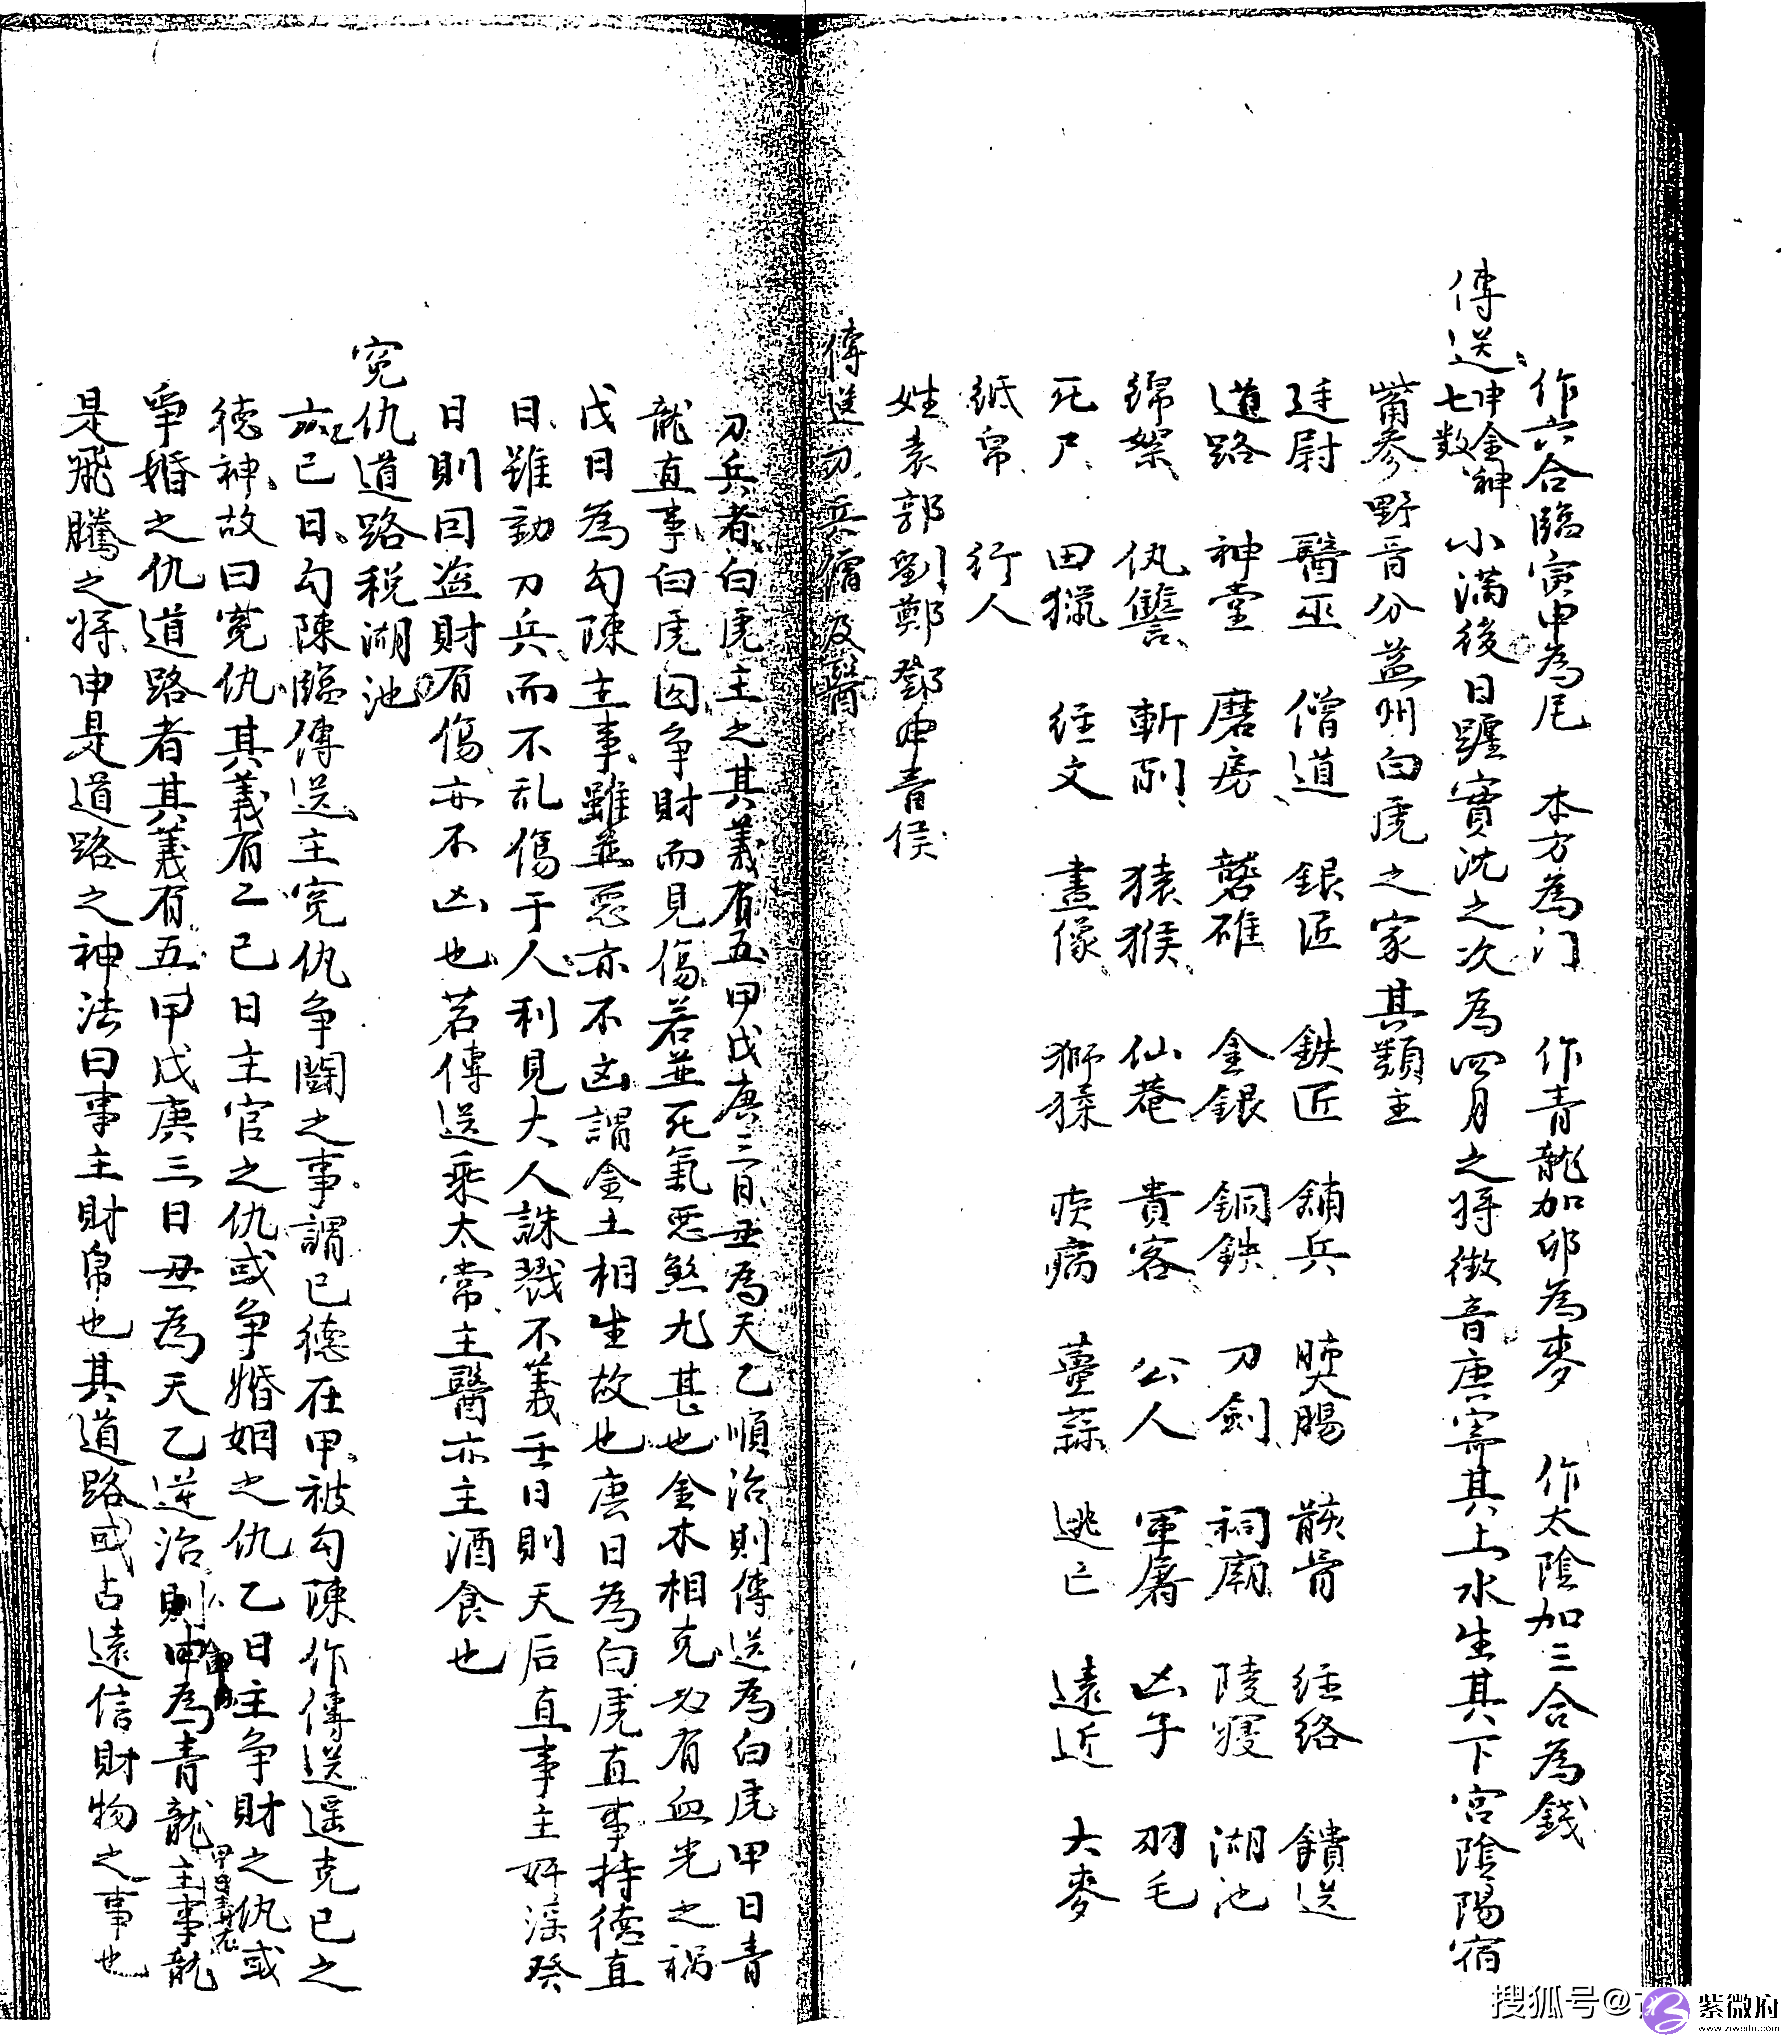 作六合臨寅申為尼 本方為门 作青龍加卯為麥 作太陰加三合為錢
傳送 申金神 七数 小满後日躔實沈之次為四月之将徵音唐寓其上水生其下宫陰陽宿
觜参野晋分益州白虎之家其類主
廷尉 醫巫 僧道 銀匠 鉄匠 舖兵 腸 骸骨 經络 饋送
道路 神堂 磨房 礱碓 金銀 銅鉄 刀劍 祠廟 陵寝 湖池
綿絮 仇讐 斬剮 猿猴 仙菴 貴客 公人 軍屠 凶子 羽毛
死尸 田獵 經文 畫像 獅猱 疾病 薑蒜 逃亡 遠近 大麥
紙帛 行人
姓袁郭劉鄭鄧申青侯
傳送刀兵 及醫
刀兵者白虎主之其義有五甲戊庚三日丑為天乙順治則傳送為白虎甲日青
龍直事白虎因争財而見傷若並死氣惡煞尤甚也金木相克必有血光之祸
戊日為勾陳主事雖並惡亦不凶謂金土相生故也庚日為白虎直事持德直
日雖動刀兵而不乱傷于人利見大人誅戮不義壬日則天后直事主奸滛癸
日則因盗財有傷亦不凶也若傳送乘太常主醫亦主酒食也
寃仇道路税湖池
六己日勾陳臨傳送主寃仇争鬪之事謂己德在甲被勾陳作傳送遥克己之
德神故曰寃仇其義有二己日主官之仇或争婚姻之仇乙日主争財之仇或
爭婚之仇道路者其義有五甲戊庚三日丑為天乙逆治則申為青龍主事龍
是飛騰之将申是道路之神法曰事主財帛也其道路或占遠信財物之事也